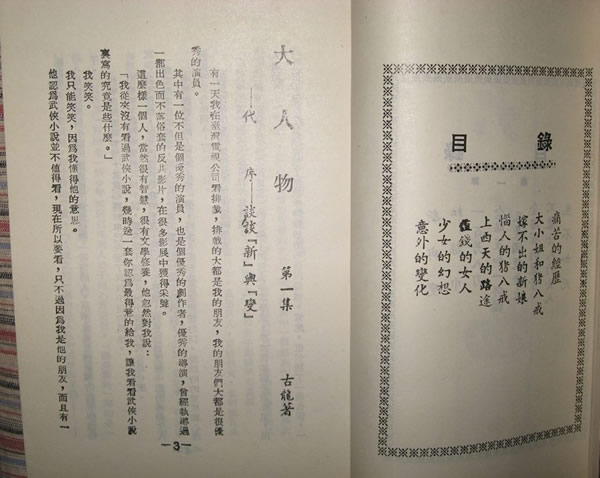 目錄
痛苦的經歷
大小姐和猪八戒
嫁不出的新娘
惱人的猪八戒
上西天的路途
值錢的女人
少女的幻想
意外的變化
大人物 第一集 古龍著
——代序——談談『新』與『變』
有一天我在臺灣電視公司看排戲，排戲的大都是我的朋友，我的朋友們大都是很優
秀的演員。
其中有一位不但是個優秀的演員，也是個優秀的創作者，優秀的導演，曾經執導過
一部出色而不落俗套的反共影片，在很多影展中獲得采聲。
這麼樣一個人，當然很有智慧，很有文學修養，他忽然對我說：
「我從來沒有看過武俠小說，幾時送一套你認爲最得意的給我，讓我看看武俠小說
裏寫的究竟是些什麼。」
我笑笑。
我只能笑笑，因爲我懂得他的意思。
他認爲武俠小說並不值得看，現在所以要看，只不過因爲我是他的朋友，而且有一
—3—